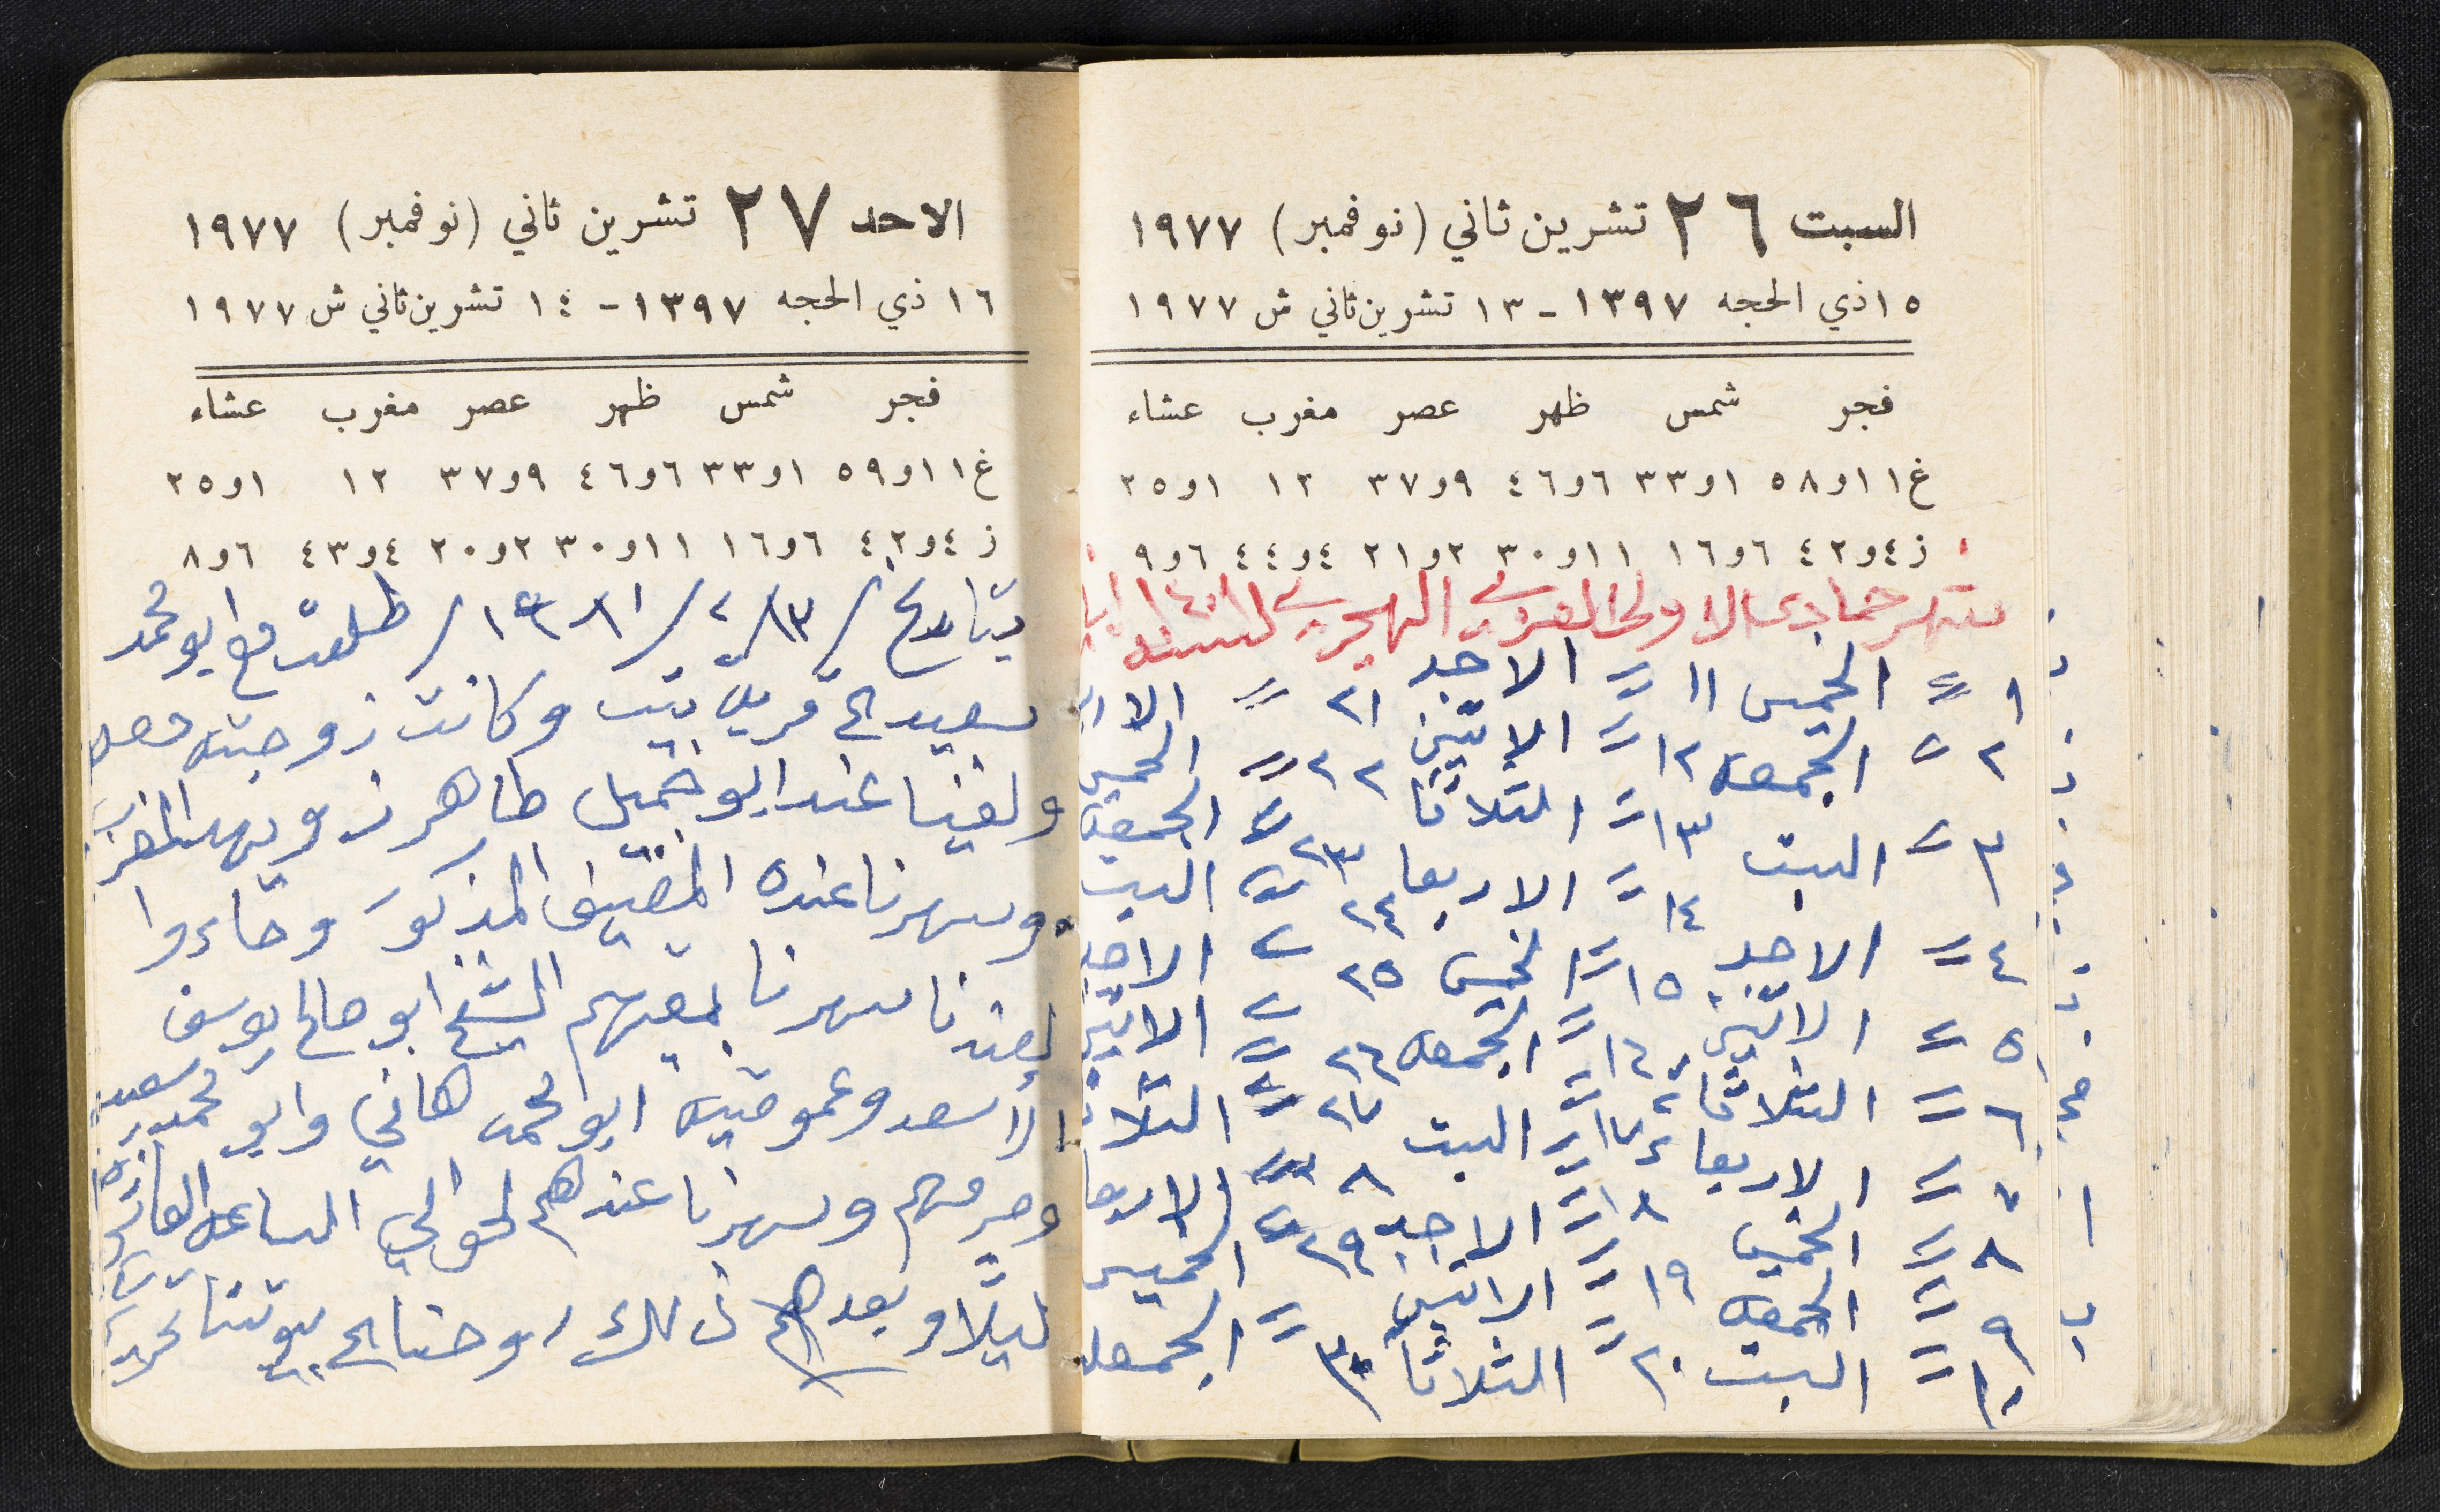 السبت ٢٦ تشرين ثاني (نوفمبر) ١٩٧٧
١٥ ذي الحجه ١٣٩٧ - ١٣ تشرين ثاني ش ١٩٧٧
فجر شمس ظهر عصر مغرب عشاء
غ ١١و٥٨ ١و٣٣ ٦و٤٦ ٩و٣٧ ١٢ ١و٢٥
ز ٤و٤٢ ٦و١٦ ١١و٣٠ ٢و٢١ ٤و٤٤ ٦و٩
شهر جمادى الاولى العربي الهجري لسنة ١٤٠١
١ = الخميس ١١ = الاحد ٢١ = الار
٢ = الجمعه ١٢ = الاثنين ٢٢ = الخميس
٣ = السبت ١٣ = الثلاثا ٢٣ = الجمعه
٤ = الاحد ١٤ = الاربعا ٢٤ = السبت
٥ = الاثنين ١٥ = الخميس ٢٥ = الاحد
٦ = الثلاثا ١٦ = الجمعه ٢٦ = الاثنين
٧ = الاربعا ١٧ = السبت ٢٧ = الثلاثا
٨ = الخميس ١٨ = الاحد ٢٨ = الاربعا
٩ = الجمعه ١٩ = الاثنين ٢٩ = الخميس
١٠ = السبت ٢٠ = الثلاثا ٣٠ = الجمعه
الاحد ٢٧ تشرين ثاني (نوفمبر) ١٩٧٧
١٦ ذي الحجه ١٣٩٧ - ١٤ تشرين ثاني ش ١٩٧٧
فجر شمس ظهر عصر مغرب عشاء
غ ١١و٥٩ ١و٣٣ ٦و٤٦ ٩و٣٧ ١٢ ١و٢٥
ز ٤و٤٢ ٦و١٦ ١١و٣٠ ٢و٢٠ ٤و٤٣ ٦و٨
بتاريخ /١٣/٤/١٩٨١/ طلعت مع ابو محمد
سعيد الى قرية وكانت زوجته معه
ولفينا عند ابو جميل طاهر
وسهرنا عنده المضيف المذكور وجاءوا
لعندنا سهرنا بمعيتهم الشيخ ابو صالح يوسف
الاسعد وعموقيته ابو محمد هاني وابو محمد سعيد
وحرمهم وسهرنا عندهم لحوالي الساعه العاشره
ليلًا وبعد ذلك روحنا الى بيوتنا